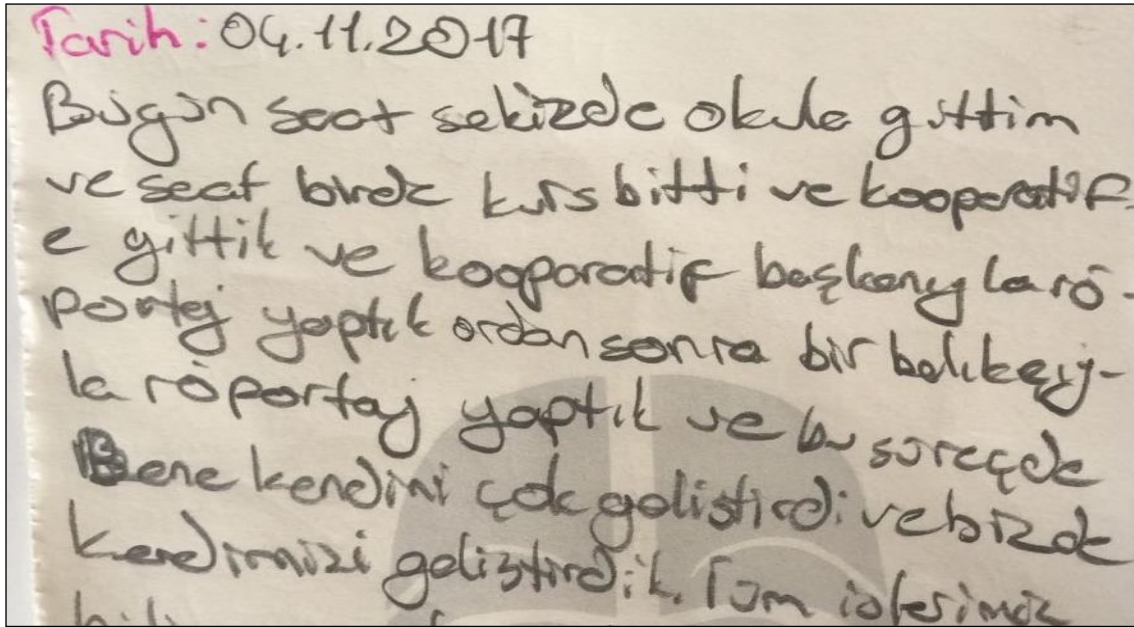 Tarih: 04.11.2017
Bugün saat sekizde okula gittim
ve saat birde kurs bitti ve kooperatif-
e gittik ve kooparatif başkanıyla rö-
portaj yaptık ordan sonra bir balıkçıy-
la röportaj yaptık ve bu süreçde
Bene kendini çok geliştirdi ve bizde
kendimizi geliştirdik. Tüm işlerimiz